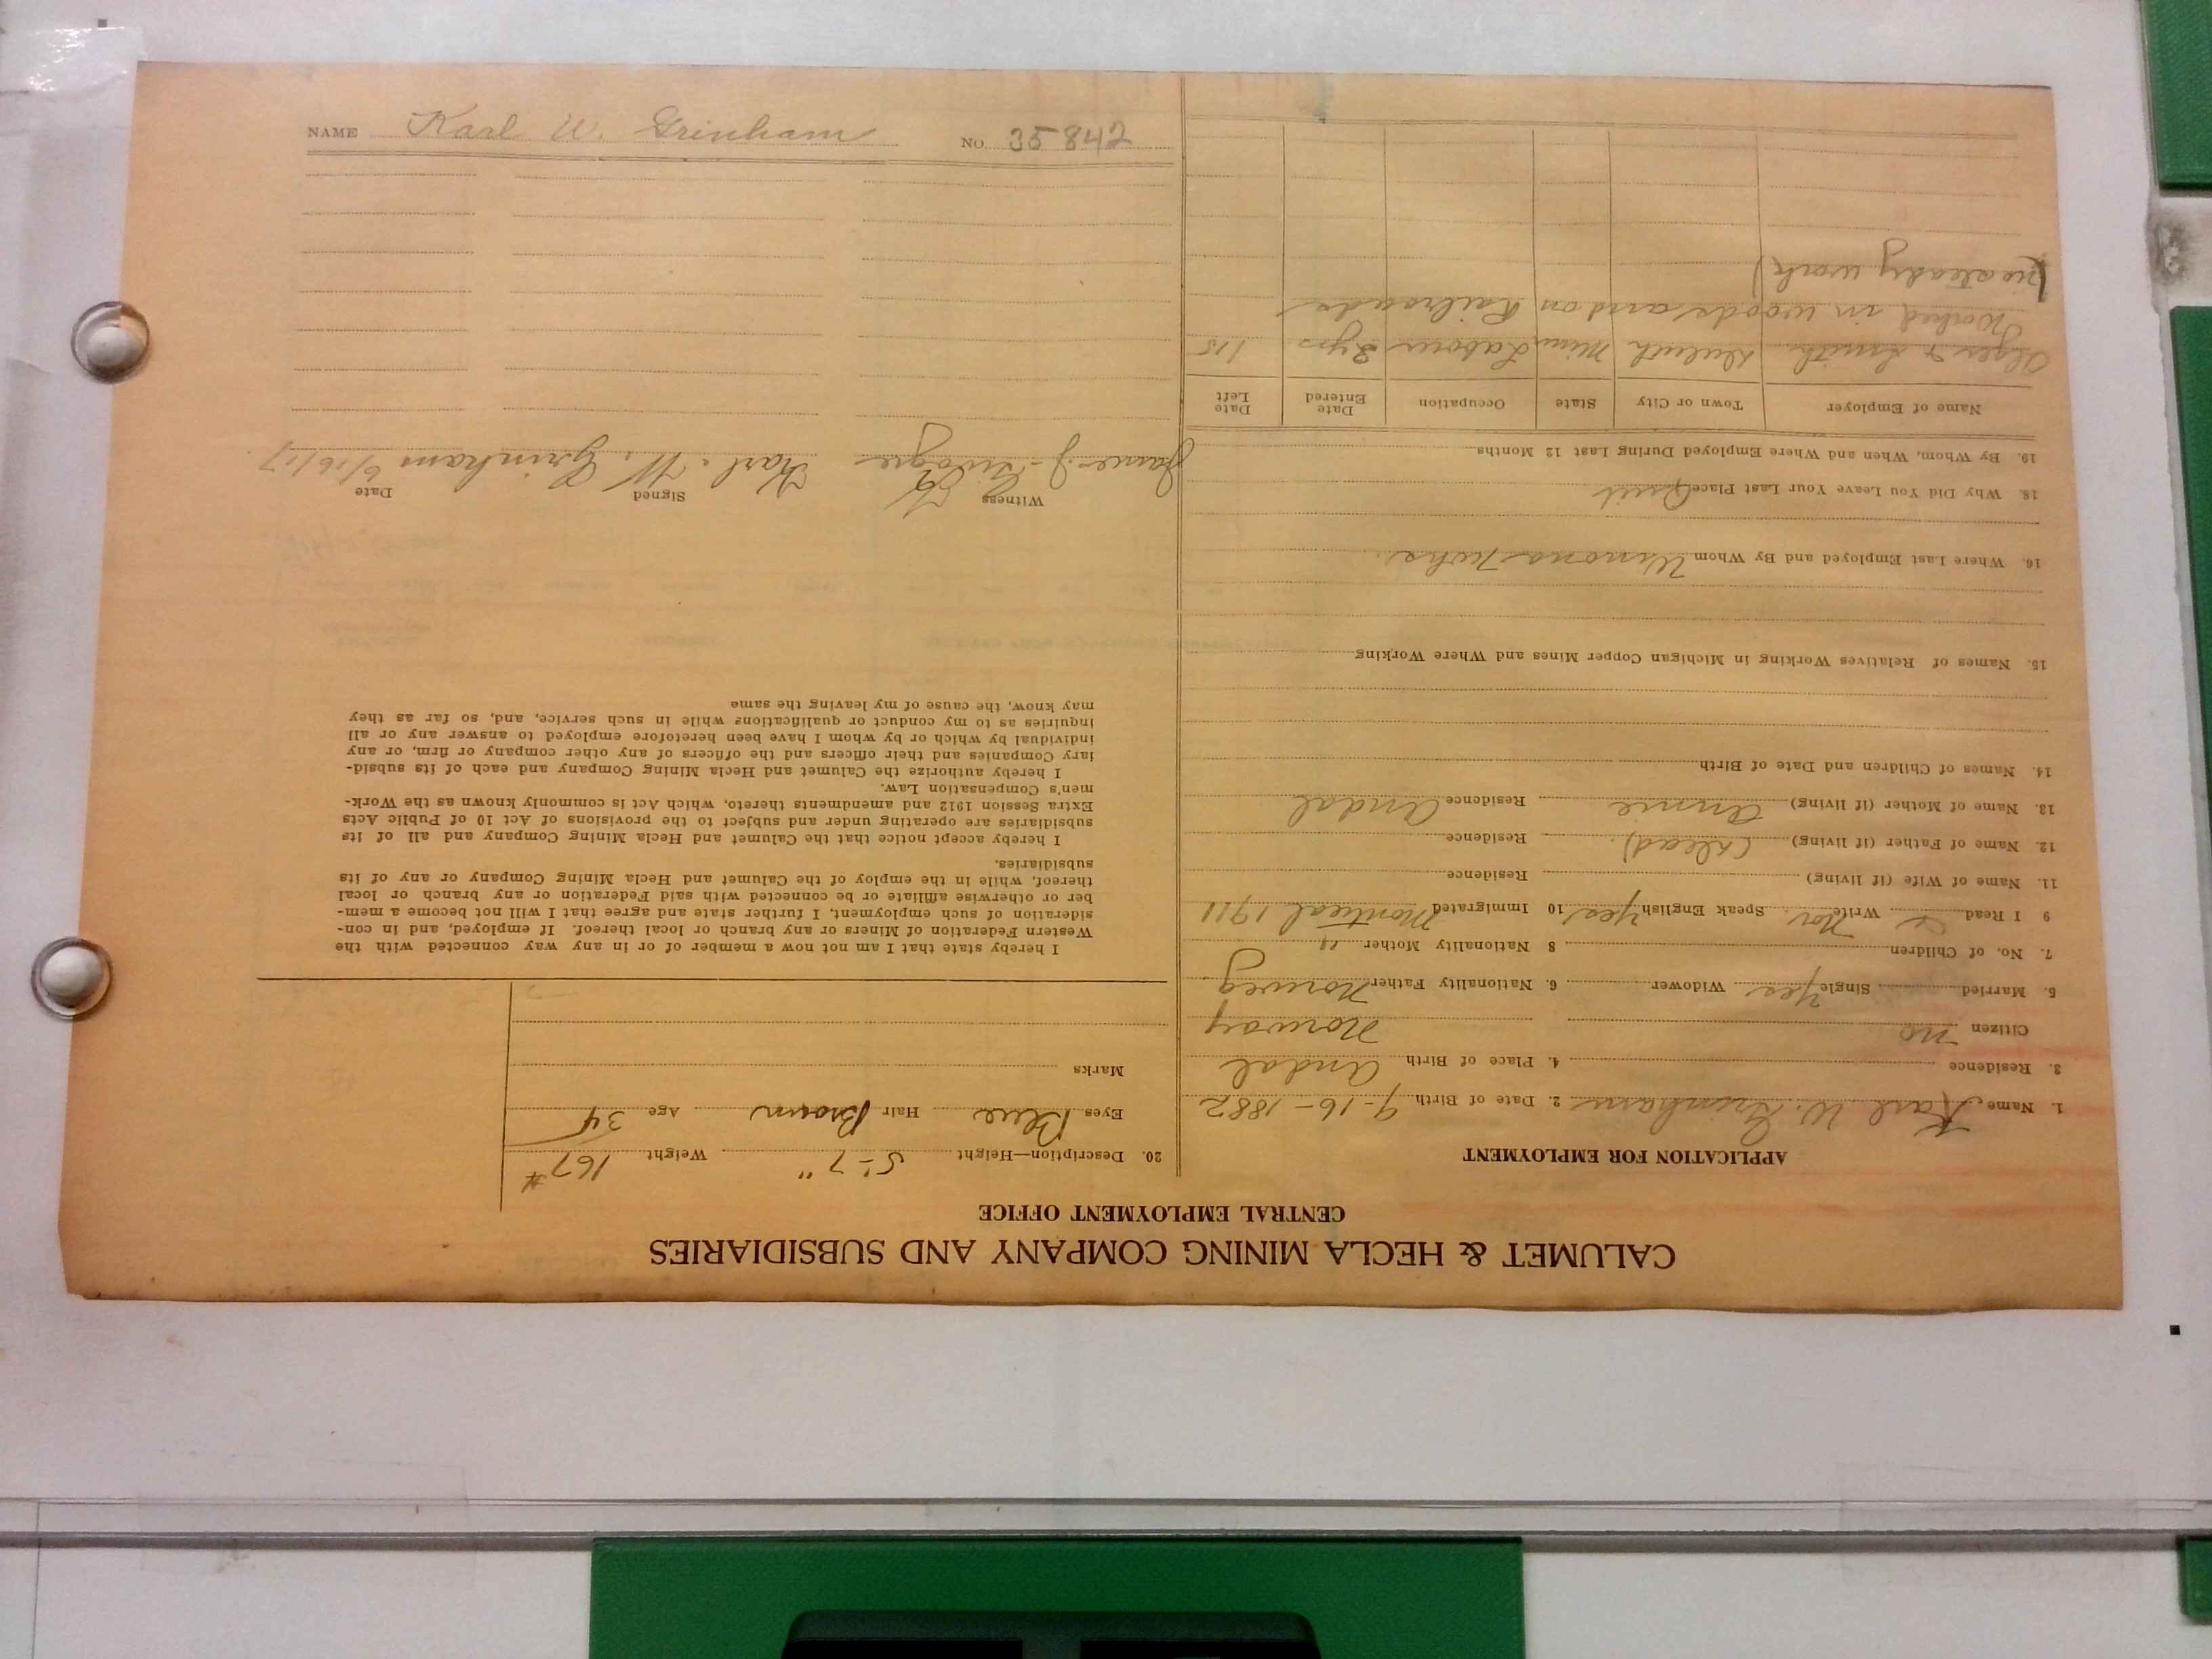 CALUMET & HECLA MINING COMPANY AND SUBSIDIARIES
CENTRAL EMPLOYMENT OFFICE
APPLICATION FOR EMPLOYMENT
1. Name, Karl W. Grinham 2. Date of Birth 9-16-1882
3. Residence 4. Place of Birth Andal
Citizen no Norway
5. Married Single Yes Widower 6. Nationality Father Norweg
7. No. of Children 8 Nationality Mother "
9 I Read & Write Nor. Speak English Yes 10 Immigrated Montreal 1911
11. Name of Wife (if living) Residence
12. Name of Father (if living) (Dead). Residence
13. Name of Mother (if living) Annie Residence Andal
14. Names of Children and Date of Birth
15. Names of Relatives Working in Michigan Copper Mines and Where Working
16. Where Last Employed and By Whom Winona
18. Why Did You Leave Your Last Place Quit
19. By Whom, When and Where Employed During Last 12 Months
Name of Employer Town or City State Occupation Date Entered Date Left
Alger & Smith Duluth Minn Labour 3 yrs 1/15
Worked in woods and on Railroads
(no steady work)
20. Description—Height 5'-7" Weight 167#
Eyes Blue Hair Brown Age 34
Marks
I hereby state that I am not now a member of or in any way connected with the
Western Federation of Miners or any branch or local thereof. If employed, and in con-
sideration of such employment, I further state and agree that I will not become a mem-
ber or otherwise affiliate or be connected with said Federation or any branch or local
thereof, while in the employ of the Calumet and Hecla Mining Company or any of its
subsidiaries.
I hereby accept notice that the Calumet and Hecla Mining Company and all of its
subsidiaries are operating under and subject to the provisions of Act 10 of Public Acts
Extra Session 1912 and amendments thereto, which Act is commonly known as the Work-
men's Compensation Law.
I hereby authorize the Calumet and Hecla Mining Company and each of its subsid-
iary Companies and their officers and the officers of any other company or firm, or any
individual by which or by whom I have been heretofore employed to answer any or all
inquiries as to my conduct or qualifications while in such service, and, so far as they
may know, the cause of my leaving the same
Witness Signed Date
Karl. W. Grinham 6/16/17
NAME Karl W. Grinham NO. 35842